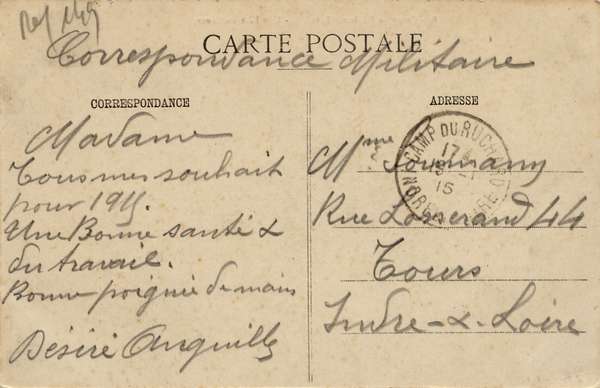 Ref 1149
CARTE POSTALE
Correspondance Militaire
CORRESPONDANCE
Madame
Tous mes souhait
pour 1915.
Une Bonne santé &
du travail.
Bonne poignée de main
Désiré Anguille
ADRESSE
CAMP DU RUCHARD
17
15 - 1
15
INDRE
Mme
Rue Losserand 44
Tours
Indre-&-Loire